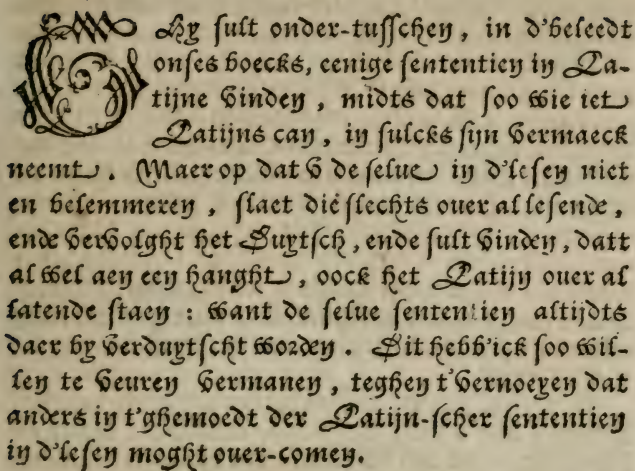 Ghy sult onder-tusschen, in d'beleedt
onses boecks, eenige sententien in La-
tijne vinden, midts dat soo wie iet
Latijns can, in sulcks sijn vermaeck
neemt. Maer op dat v de selue in d'lesen niet
en belemmeren, slaet die slechts ouer al lesende,
ende vervolght het Duytsch, ende sult vinden, datt
al wel aen een hanght, oock het Latijn ouer al
latende staen : want de selue sententien altijdts
daer by verduytscht worden. Dit hebb'ick soo wil-
len te veuren vermanen, teghen t'vernoeyen dat
anders in t'ghemoedt der Latijn-scher sententien
in d'lesen moght ouer-comen.